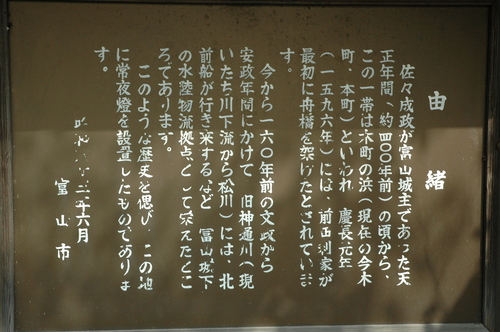 由緒
佐々成政が富山城主であった天
正年間(約四〇〇年前)の頃から、
この一帯は木町の浜(現在の今木
町、本町)といわれ 慶長元年
(一五九六年)には、前田利家が
最初に舟橋を架けたとされていま
す。
今から一六〇年前の文政から
安政年間にかけて 旧神通川(現
いたち川下流から松川)には、北
前船が行き来するなど 富山城下
の水陸物流拠点として栄えたとこ
ろであります。
このような歴史を偲び、この地
に常夜燈を設置したものでありま
す。
年六月
富山市